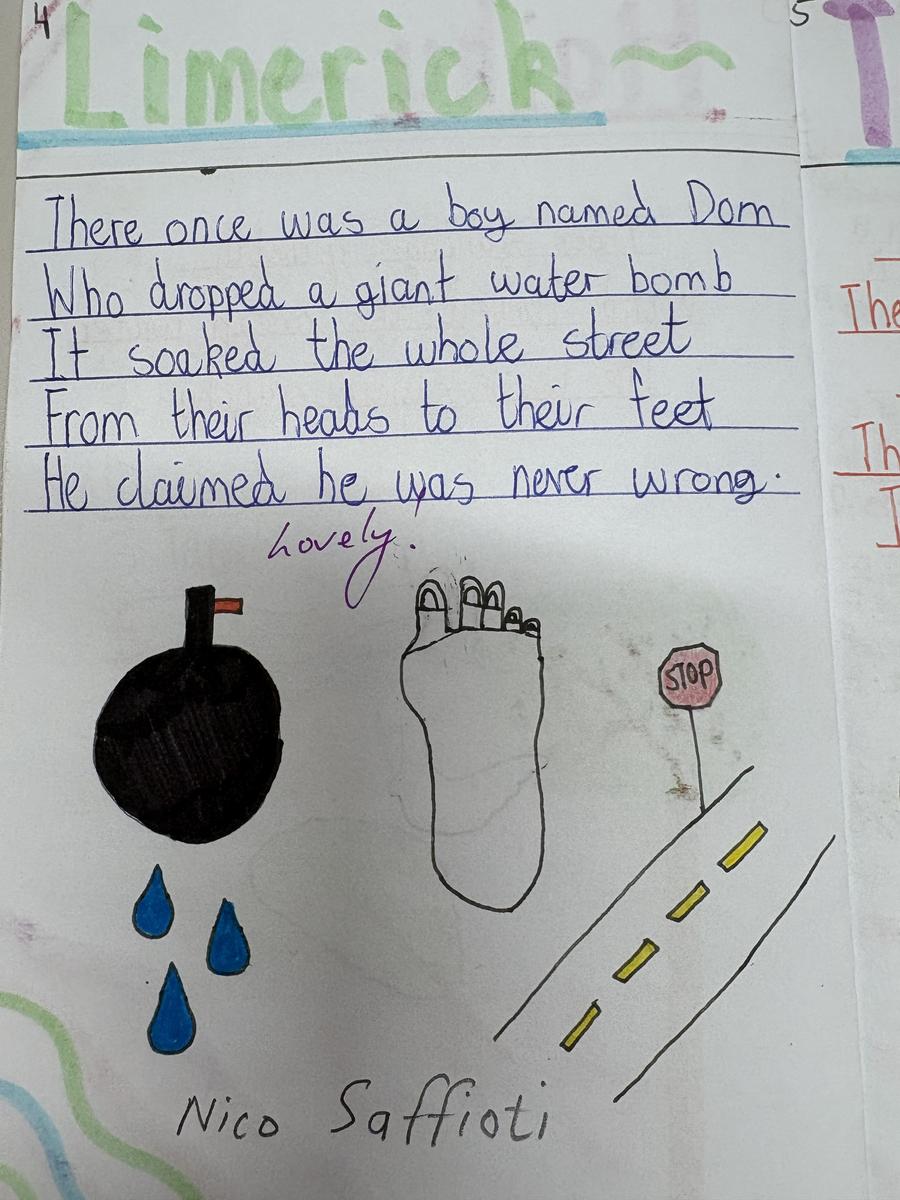 4
Limerick ~
5
T
There once was a boy named Dom
Who dropped a giant water bomb
It soaked the whole street
From their heads to their feet
He claimed he was never wrong.
Lovely.
The
Th
STOP
Nico Saffioti